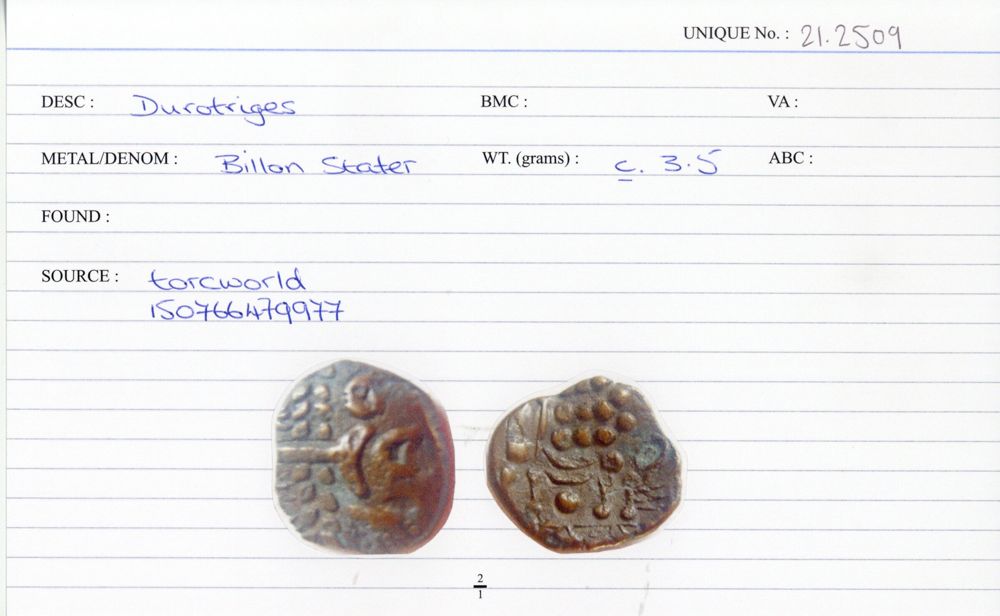 UNIQUE No. : 21.2509
DESC : Durotriges BMC : VA :
METAL/DENOM : Billon Stater WT. (grams) : c. 3.5 ABC :
FOUND :
SOURCE : torcworld
150766479977
2
1